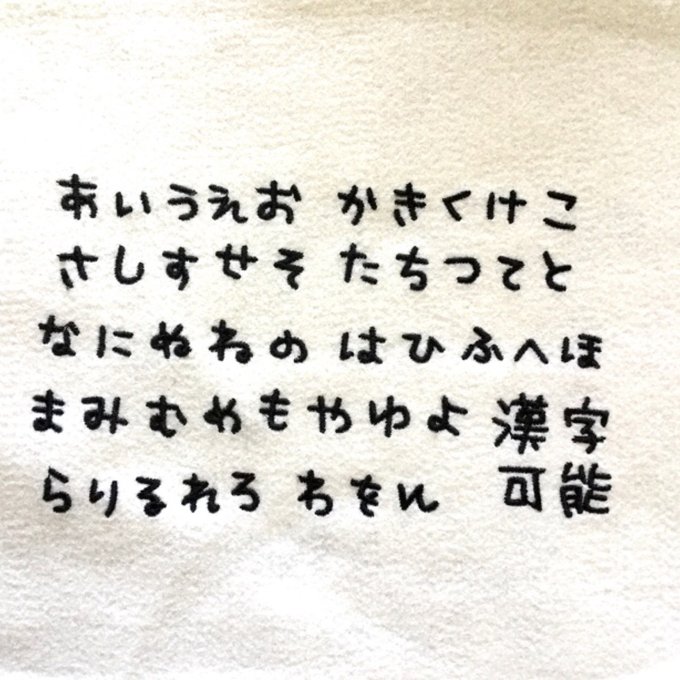 あいうえお かきくけこ
さしすせそ たちつてと
なにぬねの はひふへほ
まみむめもやゆよ 漢字
らりるれろ わをん 可能